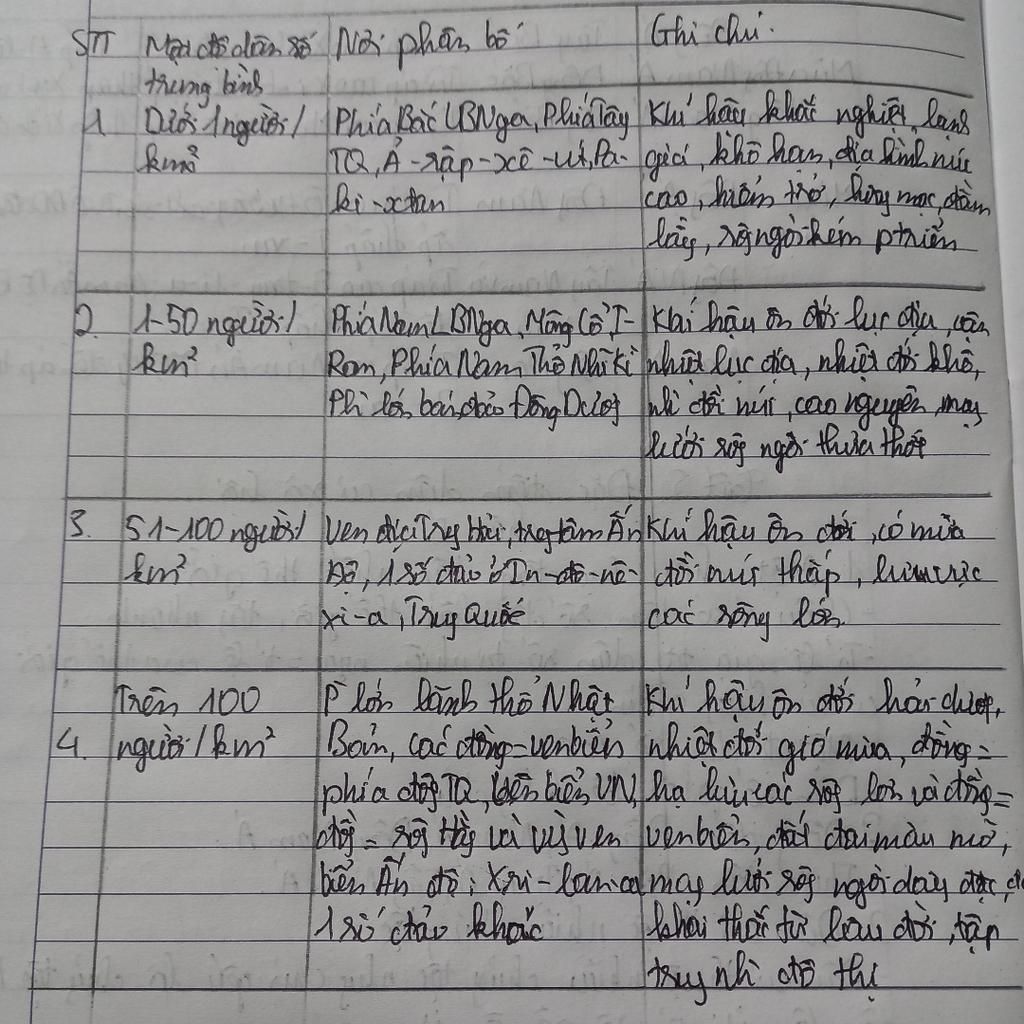 STT Mật độ dân số Nơi phân bố Ghi chú.
trung bình
1. Dưới 1 người/ Phía Bắc LBNga, Phía Tây Khí hậu khắc nghiệt, lạnh
km² TQ, Ả-rập-xê-út, Pa- giá, khô hạn, địa hình núi
ki-xtan cao, hiểm trở, hoang mạc, đầm
lầy, sông ngòi kém ptriển
2. 1-50 người/ Phía Nam LBNga, Mông Cổ, I- Khí hậu ôn đới lục địa, cận
km² Ran, Phía Nam Thổ Nhĩ Kì nhiệt lục địa, nhiệt đới khô,
Phì lớn bán đảo Đông Dương nhì đồi núi, cao nguyên, mạng
lưới sông ngòi thưa thớt
3. 51-100 người/ Ven Địa Trung Hải, trung tâm Ấn Khí hậu ôn đới, có mưa
km² Độ, 1 số đảo ở In-đô-nê- đồi núi thấp, lưu vực
xi-a, Trung Quốc các sông lớn
Trên 100 P lớn lãnh thổ Nhật Khí hậu ôn đới hải dương,
4. người/km² Bản, các đồng = ven biển nhiệt đới gió mùa, đồng =
phía đông TQ, ven biển VN, hạ lưu các sông lớn và đồng =
đồng = sông Hằng và vùng ven ven biển, đất đai màu mỡ,
biển Ấn độ; Xri-lan-ca mạng lưới sông ngòi dày đặc,
1 số đảo khác khai thác từ lâu đời, tập
trung nhì đô thị